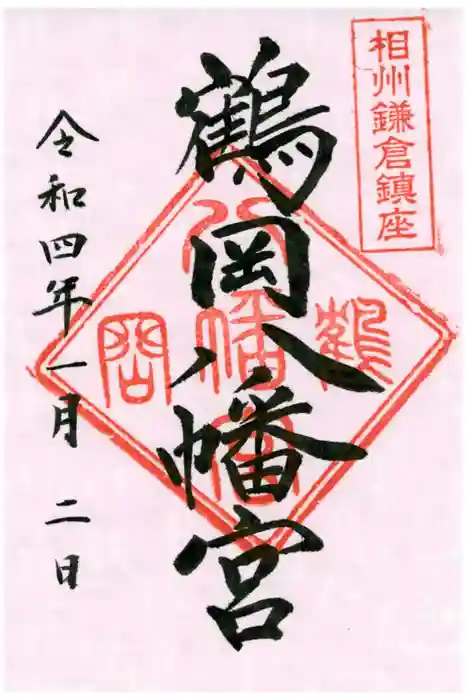 相州鎌倉鎮座
鶴岡八幡宮
鶴岡
八幡宮
令和四年一月二日